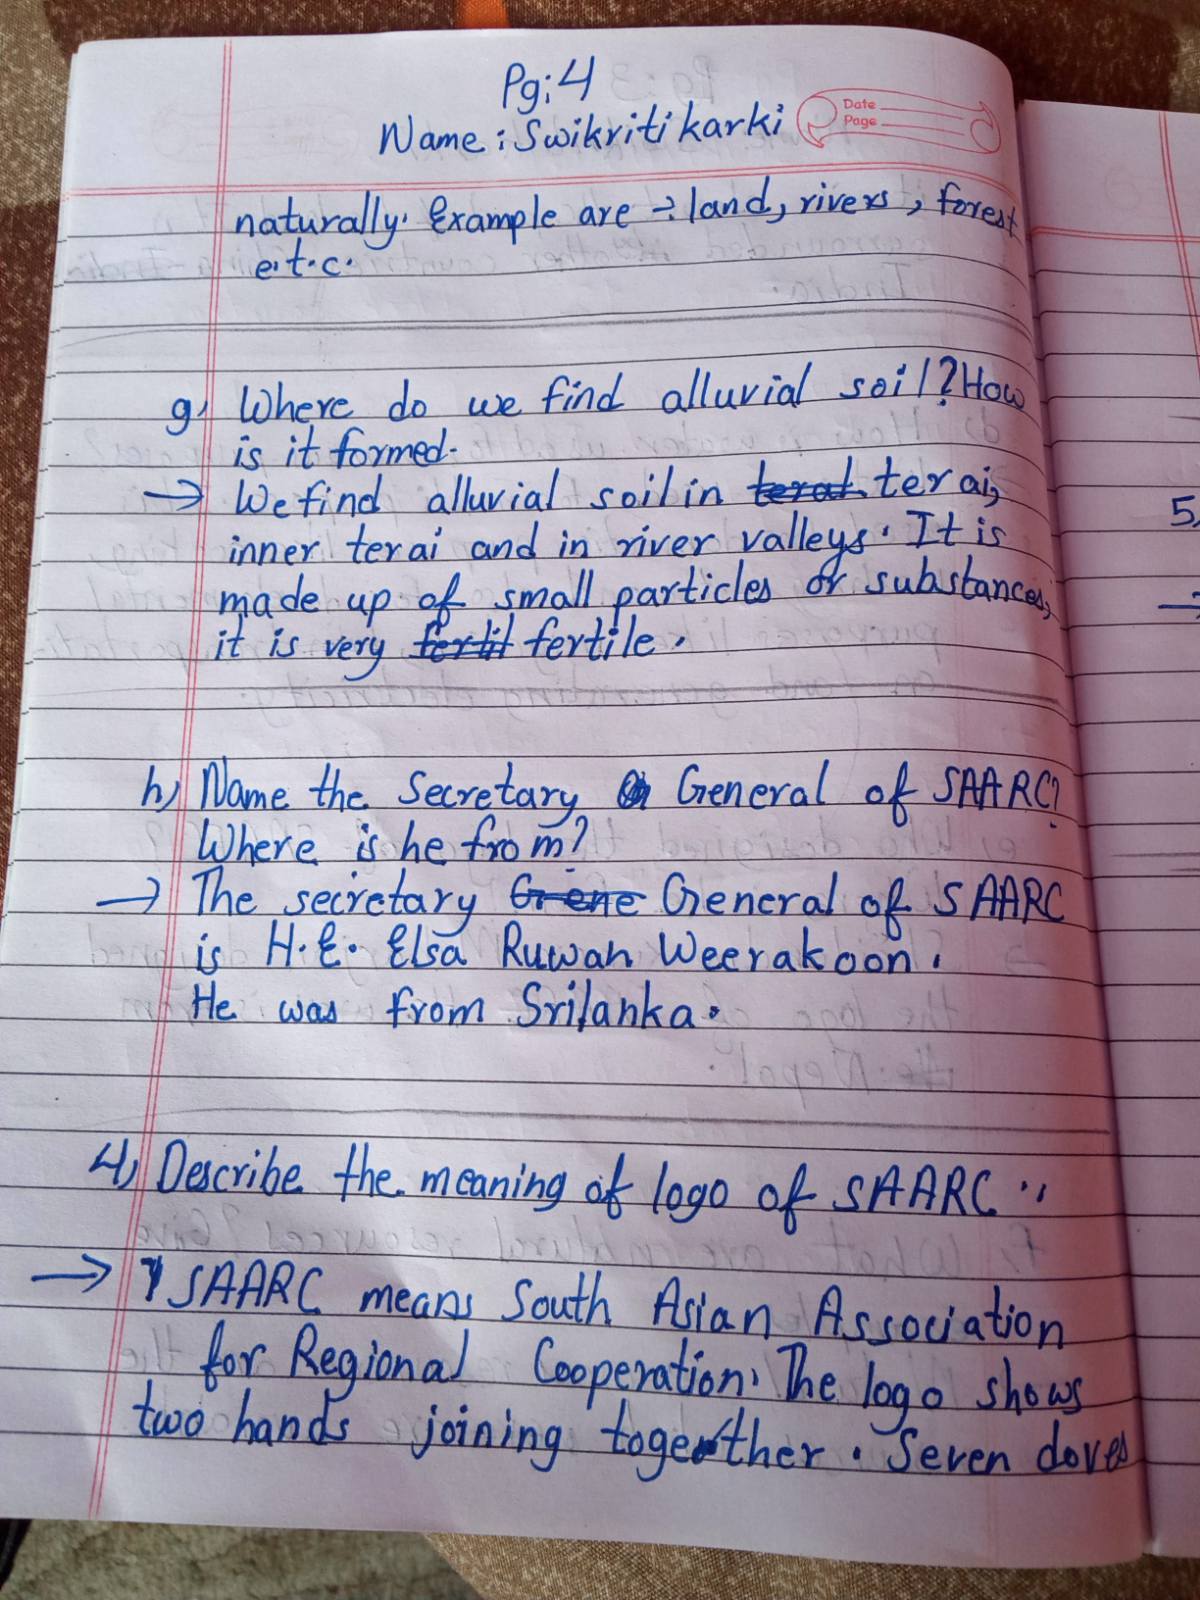 Pg: 4
Name : Swikriti karki
Date
Page
naturally. Example are → land, rivers, forest
e.t.c.
g) Where do we find alluvial soil? How
is it formed.
→ We find alluvial soil in terai,
inner terai and in river valleys. It is
made up of small particles or substances,
it is very fertile.
h) Name the Secretary General of SAARC?
Where is he from?
→ The secretary General of SAARC
is H.E. Elsa Ruwan Weerakoon.
He was from Srilanka.
4) Describe the meaning of logo of SAARC..
→ SAARC means South Asian Association
for Regional Cooperation. The logo shows
two hands joining together. Seven doves
5)
→